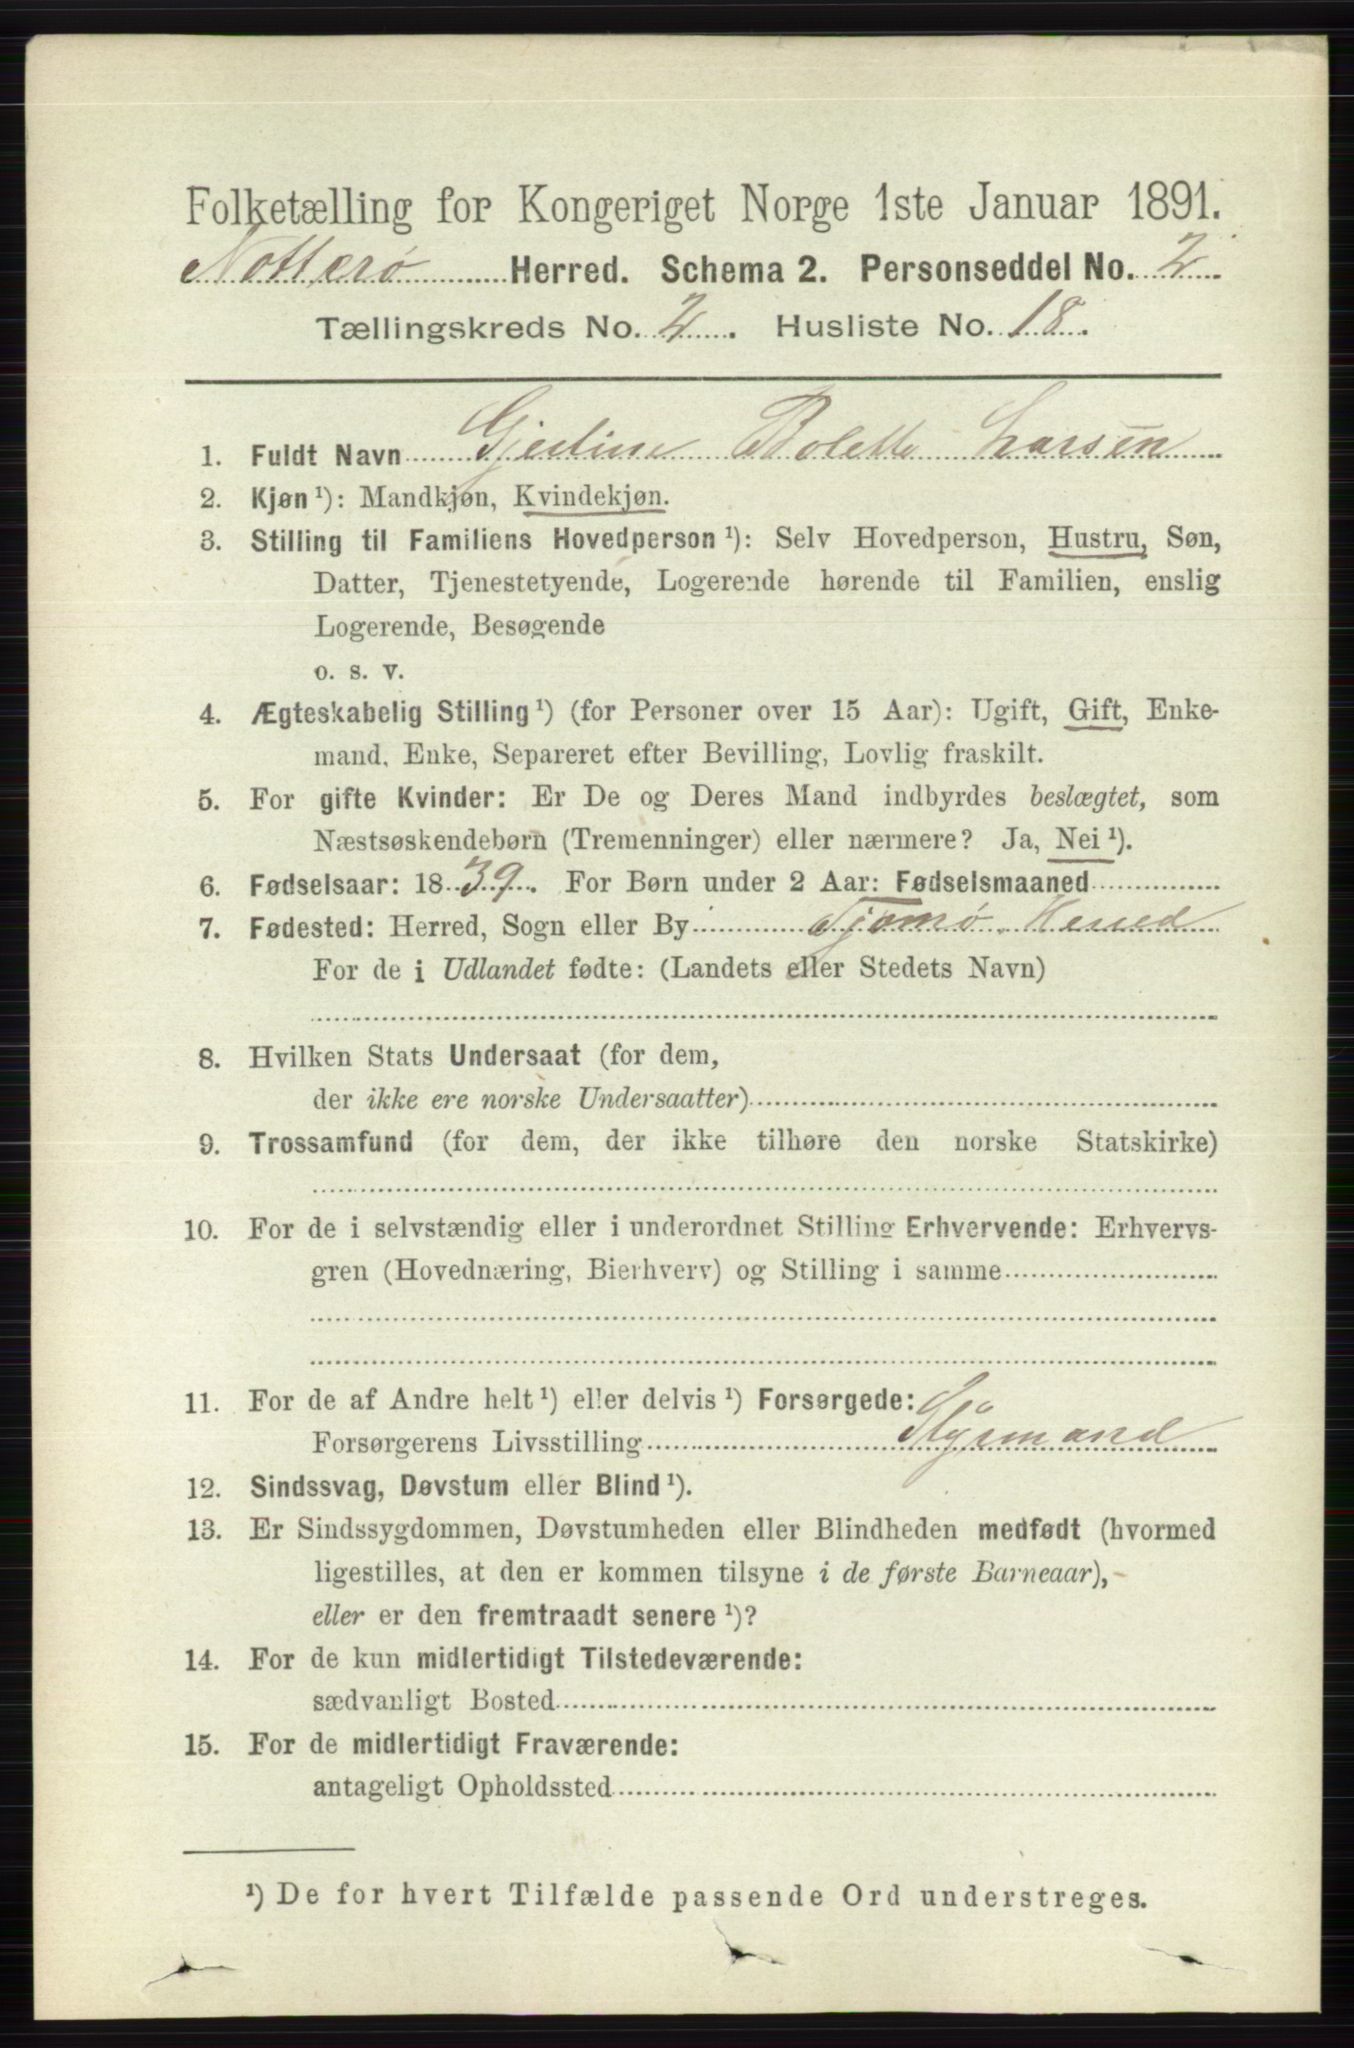 Folketælling for Kongeriget Norge 1ste Januar 1891.
Nøtterø Herred. Schema 2. Personseddel No. 2.
Tællingskreds No. 2. Husliste No. 18.
1. Fuldt Navn Gjedine Bolette Larsen
2. Kjøn ¹): Mandkjøn, Kvindekjøn.
3. Stilling til Familiens Hovedperson ¹): Selv Hovedperson, Hustru, Søn,
Datter, Tjenestetyende, Logerende hørende til Familien, enslig
Logerende, Besøgende
o. s. v.
4. Ægteskabelig Stilling ¹) (for Personer over 15 Aar): Ugift, Gift, Enke-
mand, Enke, Separeret efter Bevilling, Lovlig fraskilt.
5. For gifte Kvinder: Er De og Deres Mand indbyrdes beslægtet, som
Næstsøskendebørn (Tremenninger) eller nærmere? Ja, Nei ¹).
6. Fødselsaar: 1839. For Børn under 2 Aar: Fødselsmaaned
7. Fødested: Herred, Sogn eller By Tjømø Herred
For de i Udlandet fødte: (Landets eller Stedets Navn)
8. Hvilken Stats Undersaat (for dem,
der ikke ere norske Undersaatter)
9. Trossamfund (for dem, der ikke tilhøre den norske Statskirke)
10. For de i selvstændig eller i underordnet Stilling Erhvervende: Erhvervs-
gren (Hovednæring, Bierhverv) og Stilling i samme
11. For de af Andre helt ¹) eller delvis ¹) Forsørgede:
Forsørgerens Livsstilling Styrmand
12. Sindssvag, Døvstum eller Blind ¹).
13. Er Sindssygdommen, Døvstumheden eller Blindheden medfødt (hvormed
ligestilles, at den er kommen tilsyne i de første Barneaar),
eller er den fremtraadt senere ¹)?
14. For de kun midlertidigt Tilstedeværende:
sædvanligt Bosted
15. For de midlertidigt Fraværende:
antageligt Opholdssted
¹) De for hvert Tilfælde passende Ord understreges.